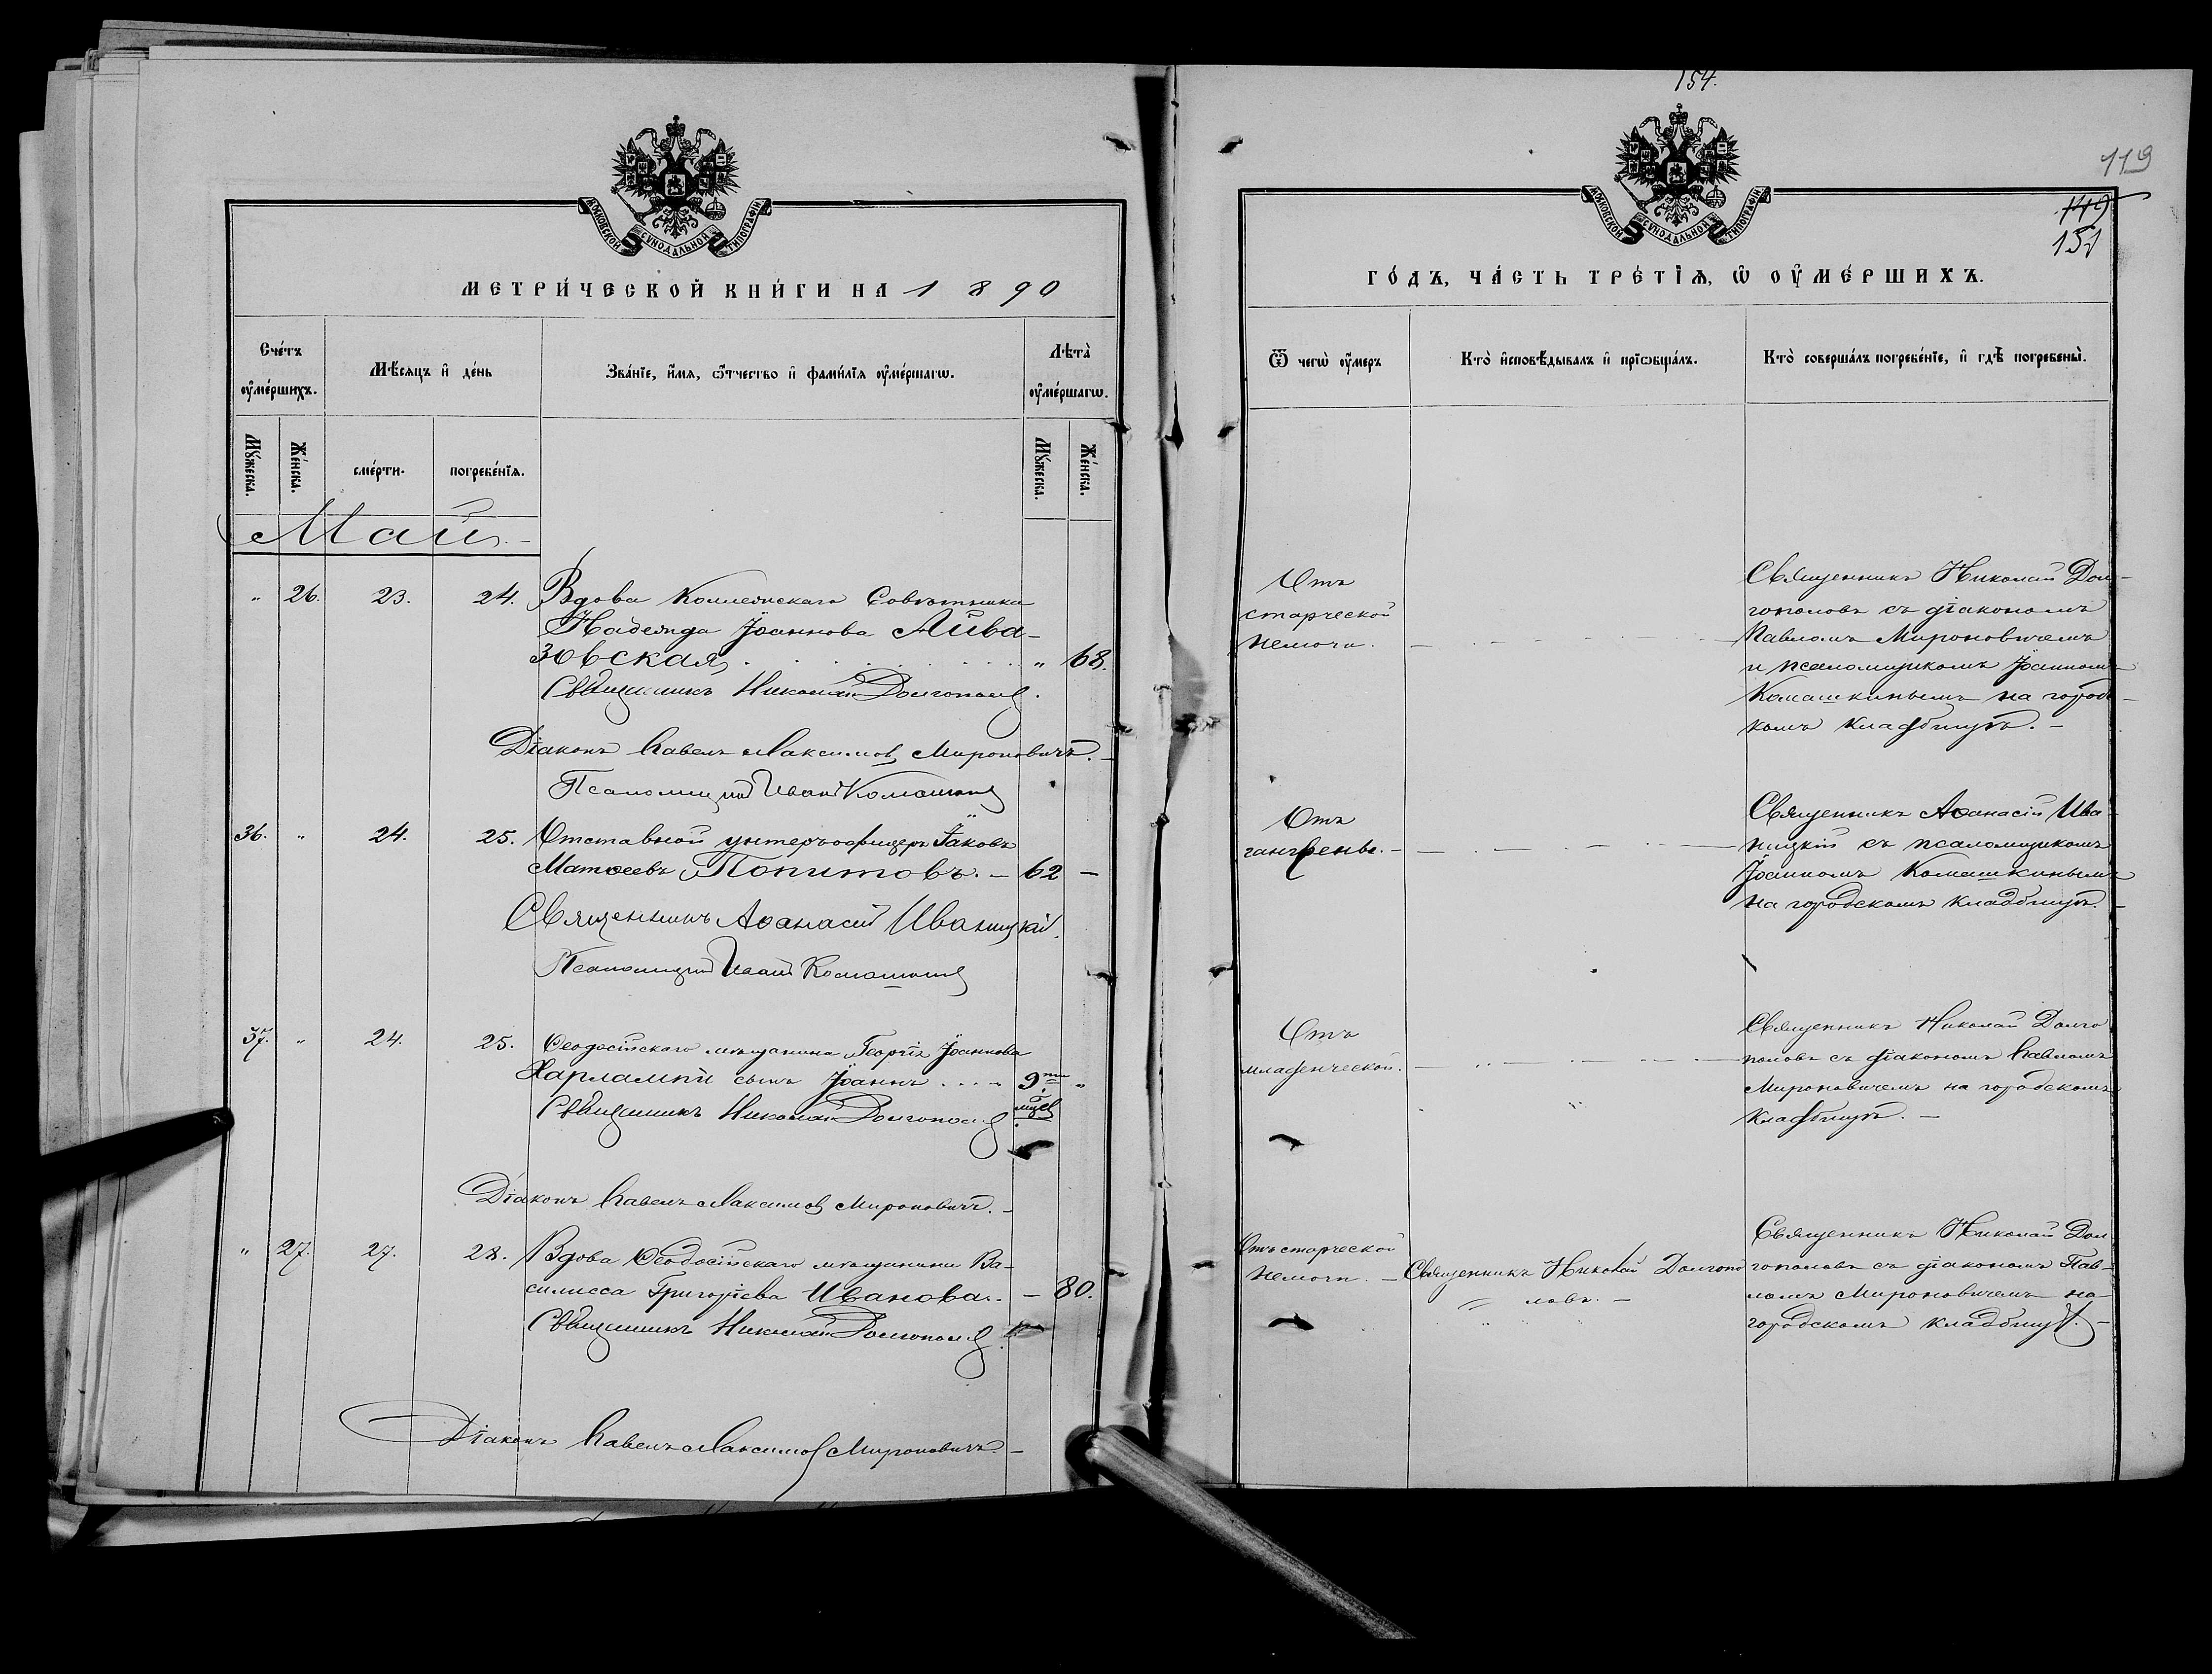 154.
119
149
151
МОСКОВСКОЙ СУНОДАЛЬНОЙ ТИПОГРАФІИ
МЕТРИ́ЧЕСКОЙ КНИ́ГИ НА 1890
Сче́тъ оу҆ме́ршихъ.
Мѣ́сяцъ и҆ де́нь
Зва́нїе, и҆́мѧ, ѻ҆́тчество и҆ фами́лїѧ оу҆ме́ршагѡ.
Лѣта̀ оу҆ме́ршагѡ.
Мꙋ́жеска.
Же́нска.
сме́рти.
погребе́нїѧ.
Мꙋ́жеска.
Же́нска.
Май.
" 26. 23. 24. Вдова Коллежскаго Совѣтника
Надежда Іоаннова Айва-
зовская " 68.
Священникъ Николай Долгополов.
Діаконъ Павелъ Максимов Мироновичъ.
Псаломщик Иван Комашкин
36. " 24. 25. Отставной унтеръ-офицеръ Іаковъ
Матѳеевъ Попитовъ. — 62 —
Священникъ Аѳанасій Иваницкій.
Псаломщик Иван Комашкин
37. " 24. 25. Ѳеодосійскаго мѣщанина Георгія Іоаннова
Харлампи сынъ Іоаннъ 9ти "
мцев
Священникъ Николай Долгополов
Діаконъ Павелъ Максимов Мироновичъ.
" 27. 27. 28. Вдова Ѳеодосійскаго мѣщанина Ва-
силисса Григоріева Иванова. — 80.
Священникъ Николай Долгополов.
Діаконъ Павелъ Максимов Мироновичъ.
МОСКОВСКОЙ СУНОДАЛЬНОЙ ТИПОГРАФІИ
ГО́ДЪ, ЧА́СТЬ ТРЕ́ТЇѦ, Ѡ҆ ОУ҆МЕ́РШИХЪ.
Ѿ чегѡ̀ оу҆́меръ
Кто̀ и҆сповѣ́дывалъ и҆ прїѡбща́лъ.
Кто̀ соверша́лъ погребе́нїе, и҆ гдѣ̀ погребены̀.
Отъ
старческой
немочи.
Священникъ Николай Дол-
гополовъ съ діакономъ
Павломъ Мироновичемъ
и псаломщикомъ Іоанномъ
Комашкинымъ на городс-
комъ кладбищѣ. —
Отъ
гангрены.
Священникъ Аѳанасій Ива-
ницкій съ псаломщикомъ
Іоанномъ Комашкинымъ
на городскомъ кладбищѣ.
Отъ
младенческой.
Священникъ Николай Долго
половъ съ діакономъ Павломъ
Мироновичемъ на городскомъ
кладбищѣ. —
Отъ старческой
немочи.
Священникъ Николай Долгопо
ловъ. —
Священникъ Николай Дол
гополовъ съ діакономъ Пав-
ломъ Мироновичемъ на
городскомъ кладбищѣ. —